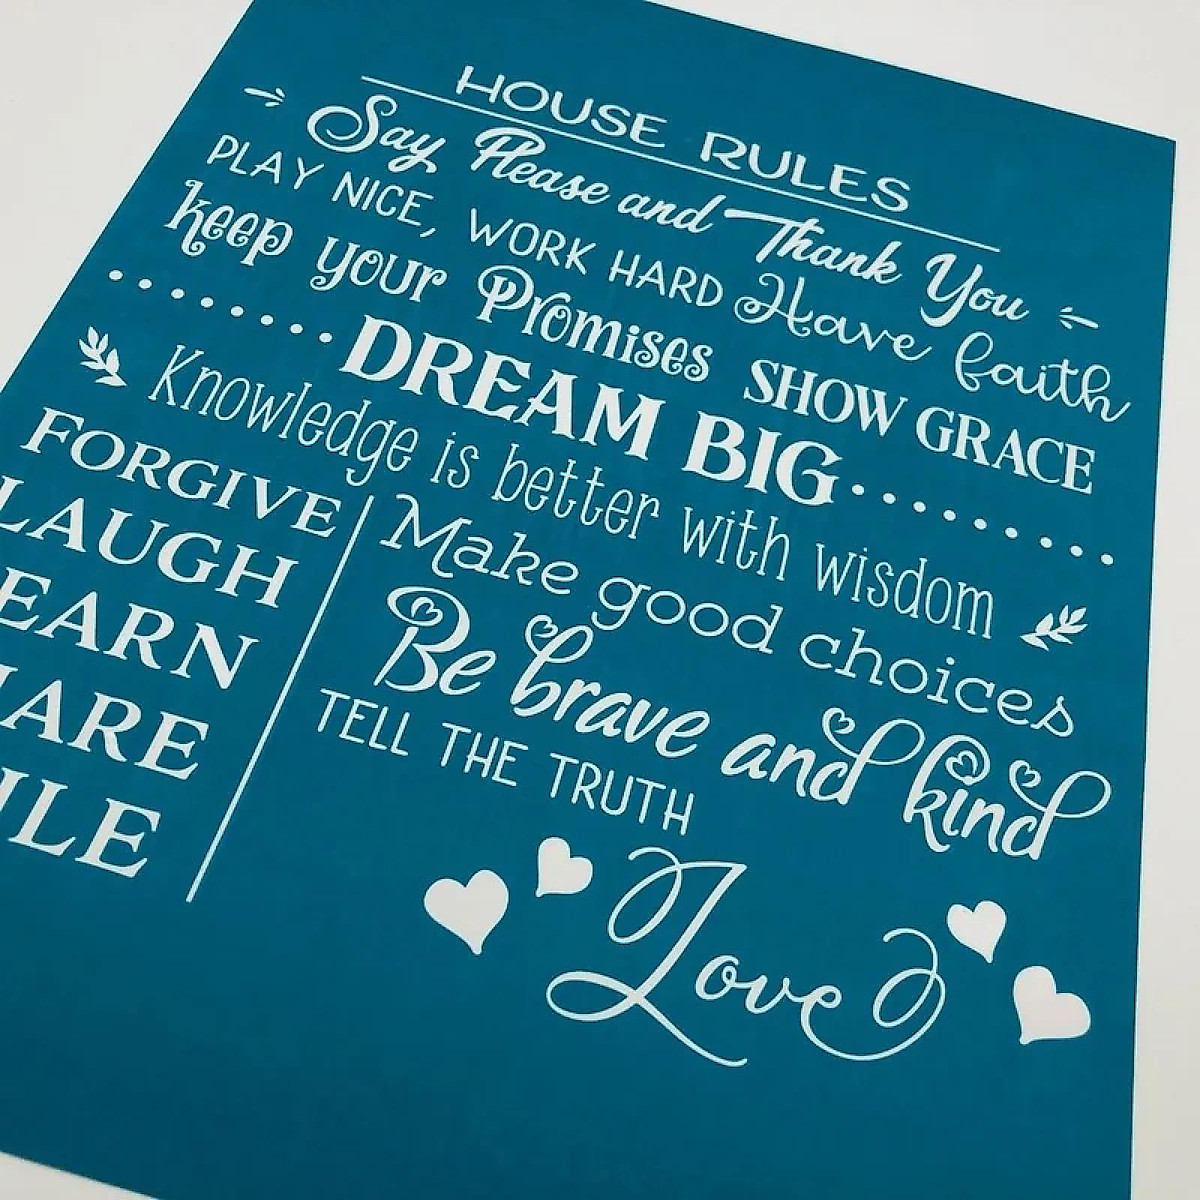 HOUSE RULES
Say Please and Thank You
PLAY NICE, WORK HARD Have faith
keep your Promises SHOW GRACE
DREAM BIG
Knowledge is better with wisdom
FORGIVE
LAUGH
EARN
ARE
ILE
Make good choices
Be brave and kind
TELL THE TRUTH
Love